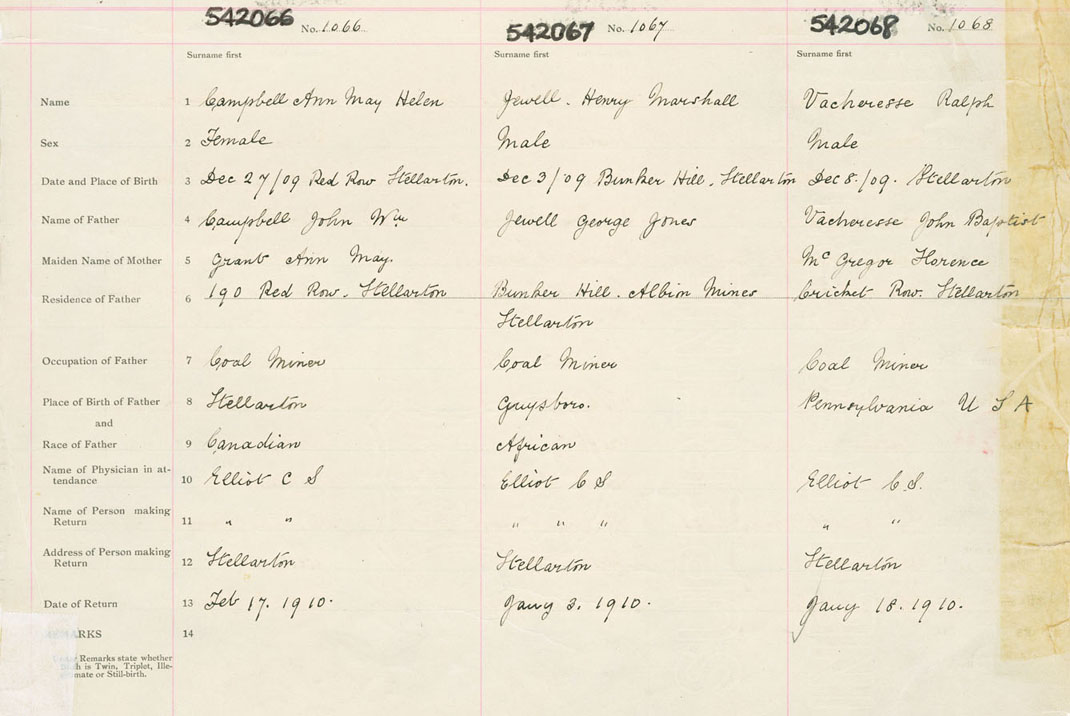 542066 No. 1066 542067 No. 1067 542068 No. 1068
Surname first Surname first Surname first
Name 1 Campbell Ann May Helen Jewell. Henry Marshall Vacheresse Ralph
Sex 2 Female Male Male
Date and Place of Birth 3 Dec 27/09 Red Row Stellarton. Dec 3/09 Bunker Hill. Stellarton Dec 8./09. Stellarton
Name of Father 4 Campbell John Wm Jewell George Jones Vacheresse John Baptist
Maiden Name of Mother 5 Grant Ann May. Mc Gregor Florence
Residence of Father 6 190 Red Row. Stellarton Bunker Hill. Albion Mines Cricket Row. Stellarton
Stellarton
Occupation of Father 7 Coal Miner Coal Miner Coal Miner
Place of Birth of Father 8 Stellarton Guysboro. Pennsylvania U S A
and
Race of Father 9 Canadian African
Name of Physician in at-
tendance 10 Elliot C S Elliot C S Elliot C.S.
Name of Person making
Return 11 " " " " " " "
Address of Person making
Return 12 Stellarton Stellarton Stellarton
Date of Return 13 Feb 17. 1910. Jany 3. 1910. Jany 18. 1910.
REMARKS 14
Under Remarks state whether
Birth is Twin, Triplet, Ille-
gitimate or Still-birth.